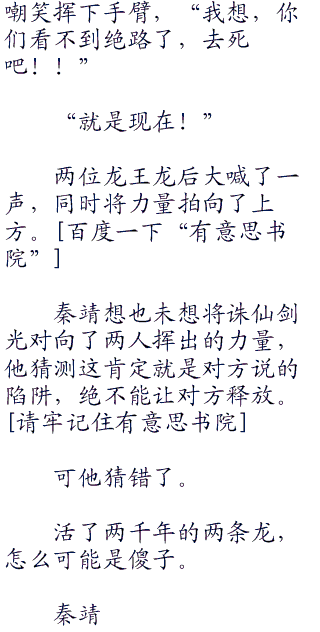 嘲笑挥下手臂，“我想，你
们看不到绝路了，去死
吧！！”
“就是现在！”
两位龙王龙后大喊了一
声，同时将力量拍向了上
方。[百度一下“有意思书
院”]
秦靖想也未想将诛仙剑
光对向了两人挥出的力量，
他猜测这肯定就是对方说的
陷阱，绝不能让对方释放。
[请牢记住有意思书院]
可他猜错了。
活了两千年的两条龙，
怎么可能是傻子。
秦靖